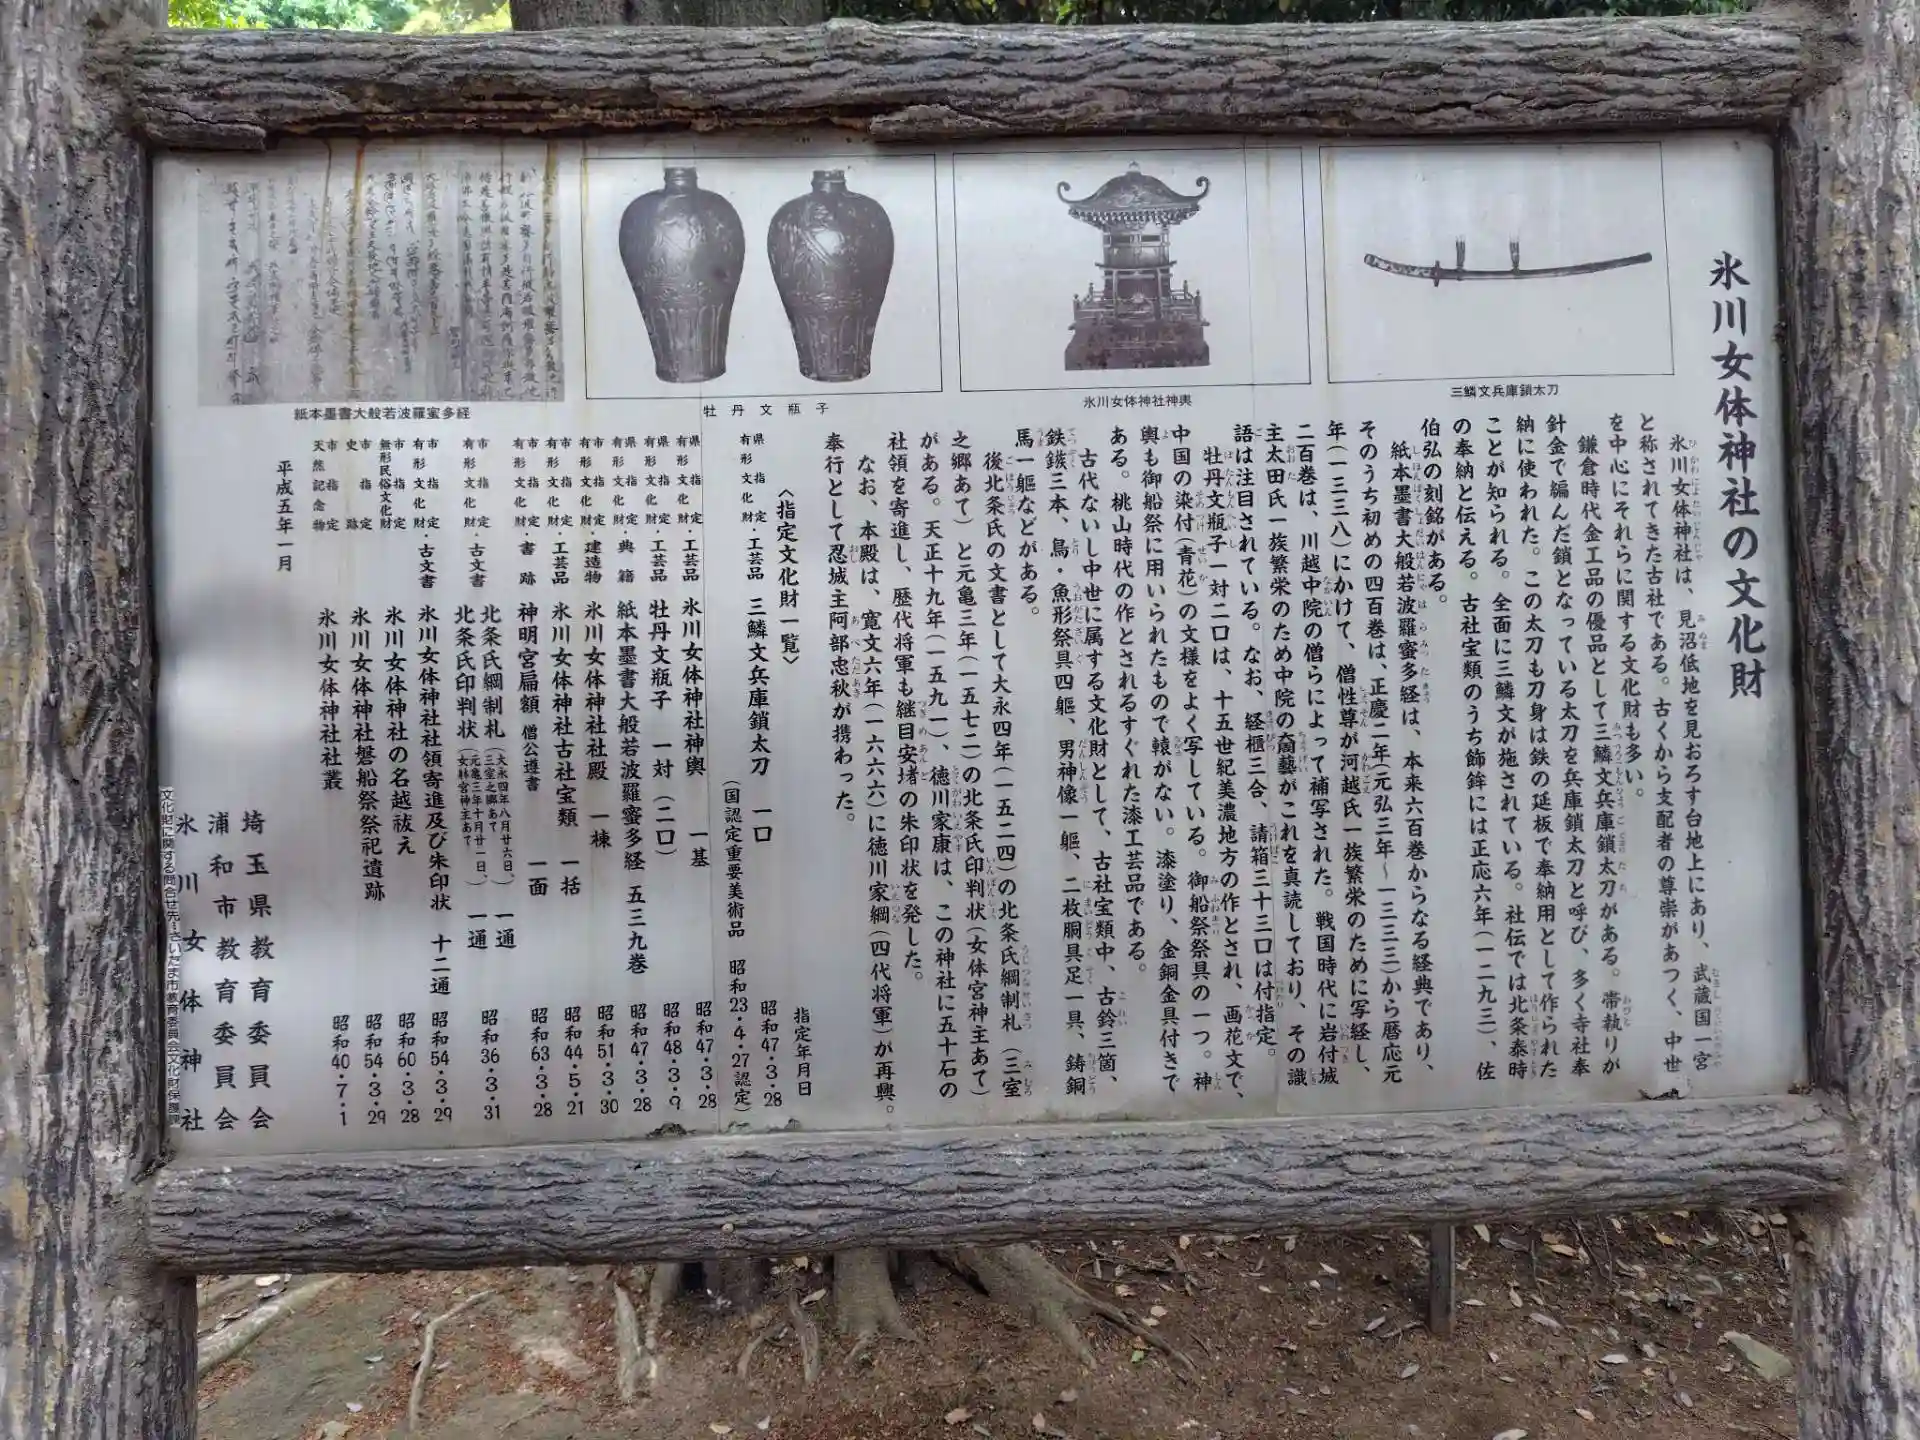 氷川女体神社の文化財
三鱗文兵庫鎖太刀
氷川女体神社神輿
牡丹文瓶子
紙本墨書大般若波羅蜜多経
氷川女体神社は、見沼低地を見おろす台地上にあり、武蔵国一宮
と称されてきた古社である。古くから支配者の尊崇があつく、中世
を中心にそれらに関する文化財も多い。
鎌倉時代金工品の優品として三鱗文兵庫鎖太刀がある。帯執りが
針金で編んだ鎖となっている太刀を兵庫鎖太刀と呼び、多く寺社奉
納に使われた。この太刀も刀身は鉄の延板で奉納用として作られた
ことが知られる。全面に三鱗文が施されている。社伝では北条泰時
の奉納と伝える。古社宝類のうち飾鉾には正応六年(一二九三)、佐
伯弘の刻銘がある。
紙本墨書大般若波羅蜜多経は、本来六百巻からなる経典であり、
そのうち初めの四百巻は、正慶二年(元弘三年~一三三三)から暦応元
年(一三三八)にかけて、僧性尊が河越氏一族繁栄のために写経し、
二百巻は、川越中院の僧らによって補写された。戦国時代に岩付城
主太田氏一族繁栄のため中院の奝藝がこれを真読しており、その識
語は注目されている。なお、経櫃三合、請箱三十三口は付指定。
牡丹文瓶子一対二口は、十五世紀美濃地方の作とされ、画花文で、
中国の染付(青花)の文様をよく写している。御船祭祭具の一つ。神
輿も御船祭に用いられたもので轅がない。漆塗り、金銅金具付きで
ある。桃山時代の作とされるすぐれた漆工芸品である。
古代ないし中世に属する文化財として、古社宝類中、古鈴三箇、
鉄鏃三本、鳥・魚形祭具四軀、男神像一軀、二枚胴具足一具、鋳銅
馬一軀などがある。
後北条氏の文書として大永四年(一五二四)の北条氏綱制札(三室
之郷あて)と元亀三年(一五七二)の北条氏印判状(女体宮神主あて)
がある。天正十九年(一五九一)、徳川家康は、この神社に五十石の
社領を寄進し、歴代将軍も継目安堵の朱印状を発した。
なお、本殿は、寛文六年(一六六六)に徳川家綱(四代将軍)が再興。
奉行として忍城主阿部忠秋が携わった。
〈指定文化財一覧〉 指定年月日
県指定有形文化財・工芸品 三鱗文兵庫鎖太刀 一口 昭和47・3・28
(国認定重要美術品 昭和23・4・27認定)
県指定有形文化財・工芸品 氷川女体神社神輿 一基 昭和47・3・28
県指定有形文化財・工芸品 牡丹文瓶子 一対(二口) 昭和48・3・9
県指定有形文化財・典籍 紙本墨書大般若波羅蜜多経 五三九巻 昭和47・3・28
県指定有形文化財・建造物 氷川女体神社社殿 一棟 昭和51・3・30
市指定有形文化財・工芸品 氷川女体神社古社宝類 一括 昭和44・5・21
市指定有形文化財・書跡 神明宮扁額 僧公遵書 一面 昭和63・3・28
市指定有形文化財・古文書 北条氏綱制札(大永四年八月廿六日、三室之郷あて) 一通 昭和36・3・31
北条氏印判状(元亀三年十月廿一日、女躰宮神主あて) 一通
市指定有形文化財・古文書 氷川女体神社社領寄進及び朱印状 十二通 昭和54・3・29
市指定無形民俗文化財 氷川女体神社の名越祓え 昭和60・3・28
市指定史跡 氷川女体神社磐船祭祭祀遺跡 昭和54・3・29
市指定天然記念物 氷川女体神社社叢 昭和40・7・1
平成五年一月
埼玉県教育委員会
浦和市教育委員会
氷川女体神社
文化財に関する問合せ先…さいたま市教育委員会文化財保護課